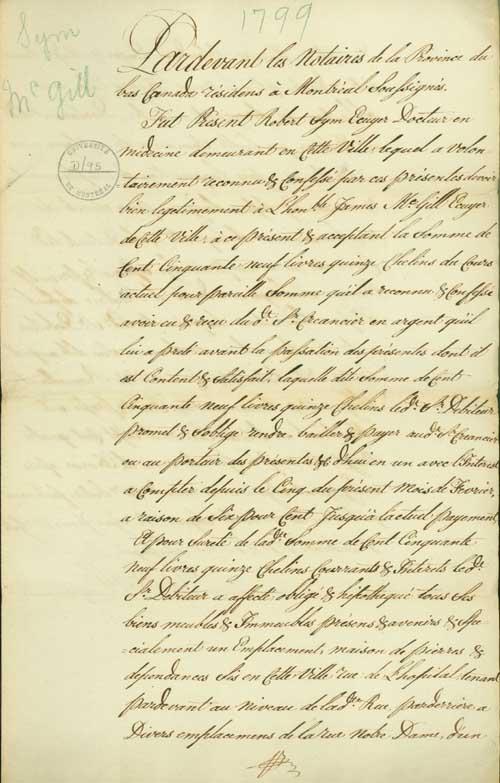 1799
Sym
Mc Gill
UNIVERSITÉ
D/95
DE MONTRÉAL
Pardevant les Notaires de la Province du
bas Canada résidens à Montréal Soussignés.
Fut Présent Robert Sym Ecuyer Docteur en
médecine demeurant en Cette Ville, lequel a volon
tairement reconnu & Confessé par ces présentes devoir
bien legitimement à L'honble. James Mc. Gill Ecuyer
de Cette Ville, à ce présent & acceptant la Somme de
Cent Cinquante neuf livres quinze Chelins du Cours
actuel pour pareille Somme qu'il a reconnu & Confessé
avoir eu & reçu du dt. Sr. Creancier en argent qu'il
lui a preté avant la passation des présentes dont il
est Content & Satisfait, laquelle dite Somme de Cent
Cinquante neuf livres quinze Chelins ledt. Sr. Debiteur
promet & s'oblige rendre, bailler & payer audt. Sr. Creancier
ou au porteur des présentes &c. d'hui en un avec l'Interest
a Compter depuis le Cinq du présent mois de Février
a raison de Six pour Cent Jusqu'à l'actuel payement
Et pour Sureté de ladte. Somme de Cent Cinquante
neuf livres quinze Chelins Courrants & Interets ledt.
Sr. Debiteur a affecté obligé & hipothequé tous Ses
biens meubles & Immeubles présens & avenirs & Spé
-cialement un Emplacement, maison de pierres &
dépendances Sis en Cette Ville rue de L'hopital tenant
pardevant au niveau de ladte. Rue, parderriere à
Divers emplacemens de la rue Notre Dame, d'un